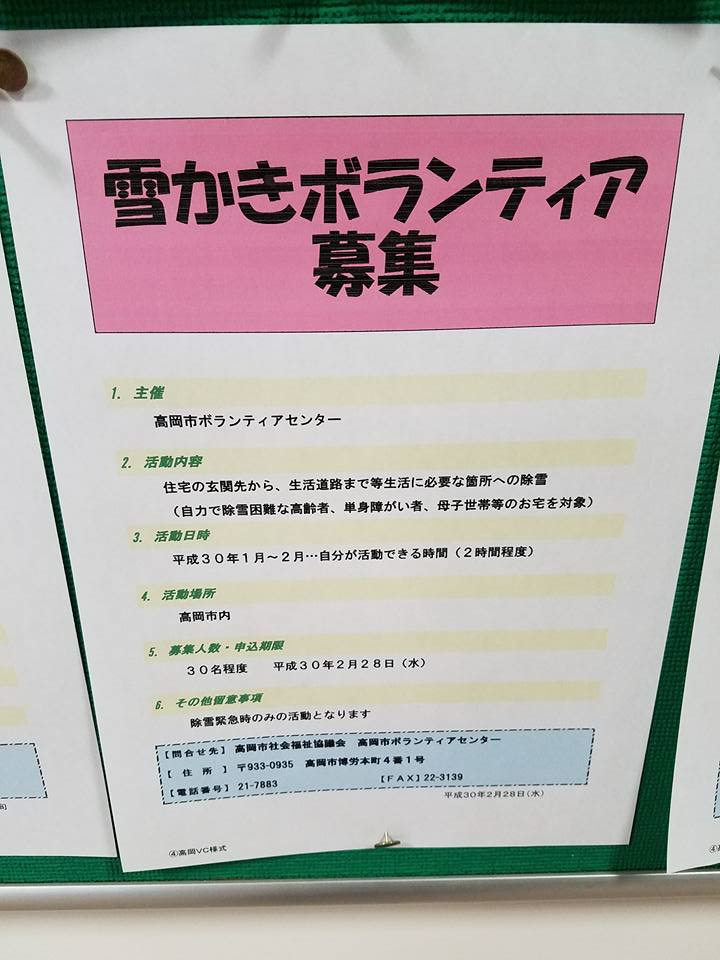 雪かきボランティア
募集
1. 主催
高岡市ボランティアセンター
2. 活動内容
住宅の玄関先から、生活道路まで等生活に必要な箇所への除雪
（自力で除雪困難な高齢者、単身障がい者、母子世帯等のお宅を対象）
3. 活動日時
平成３０年１月～２月…自分が活動できる時間（２時間程度）
4. 活動場所
高岡市内
5. 募集人数・申込期限
３０名程度　　平成３０年２月２８日（水）
6. その他留意事項
除雪緊急時のみの活動となります
【問合せ先】 高岡市社会福祉協議会　高岡市ボランティアセンター
【 住　所 】 〒933-0935　高岡市博労本町４番１号
【電話番号】 21-7883　　　【ＦＡＸ】22-3139
平成30年2月28日（水）
④高岡VC様式